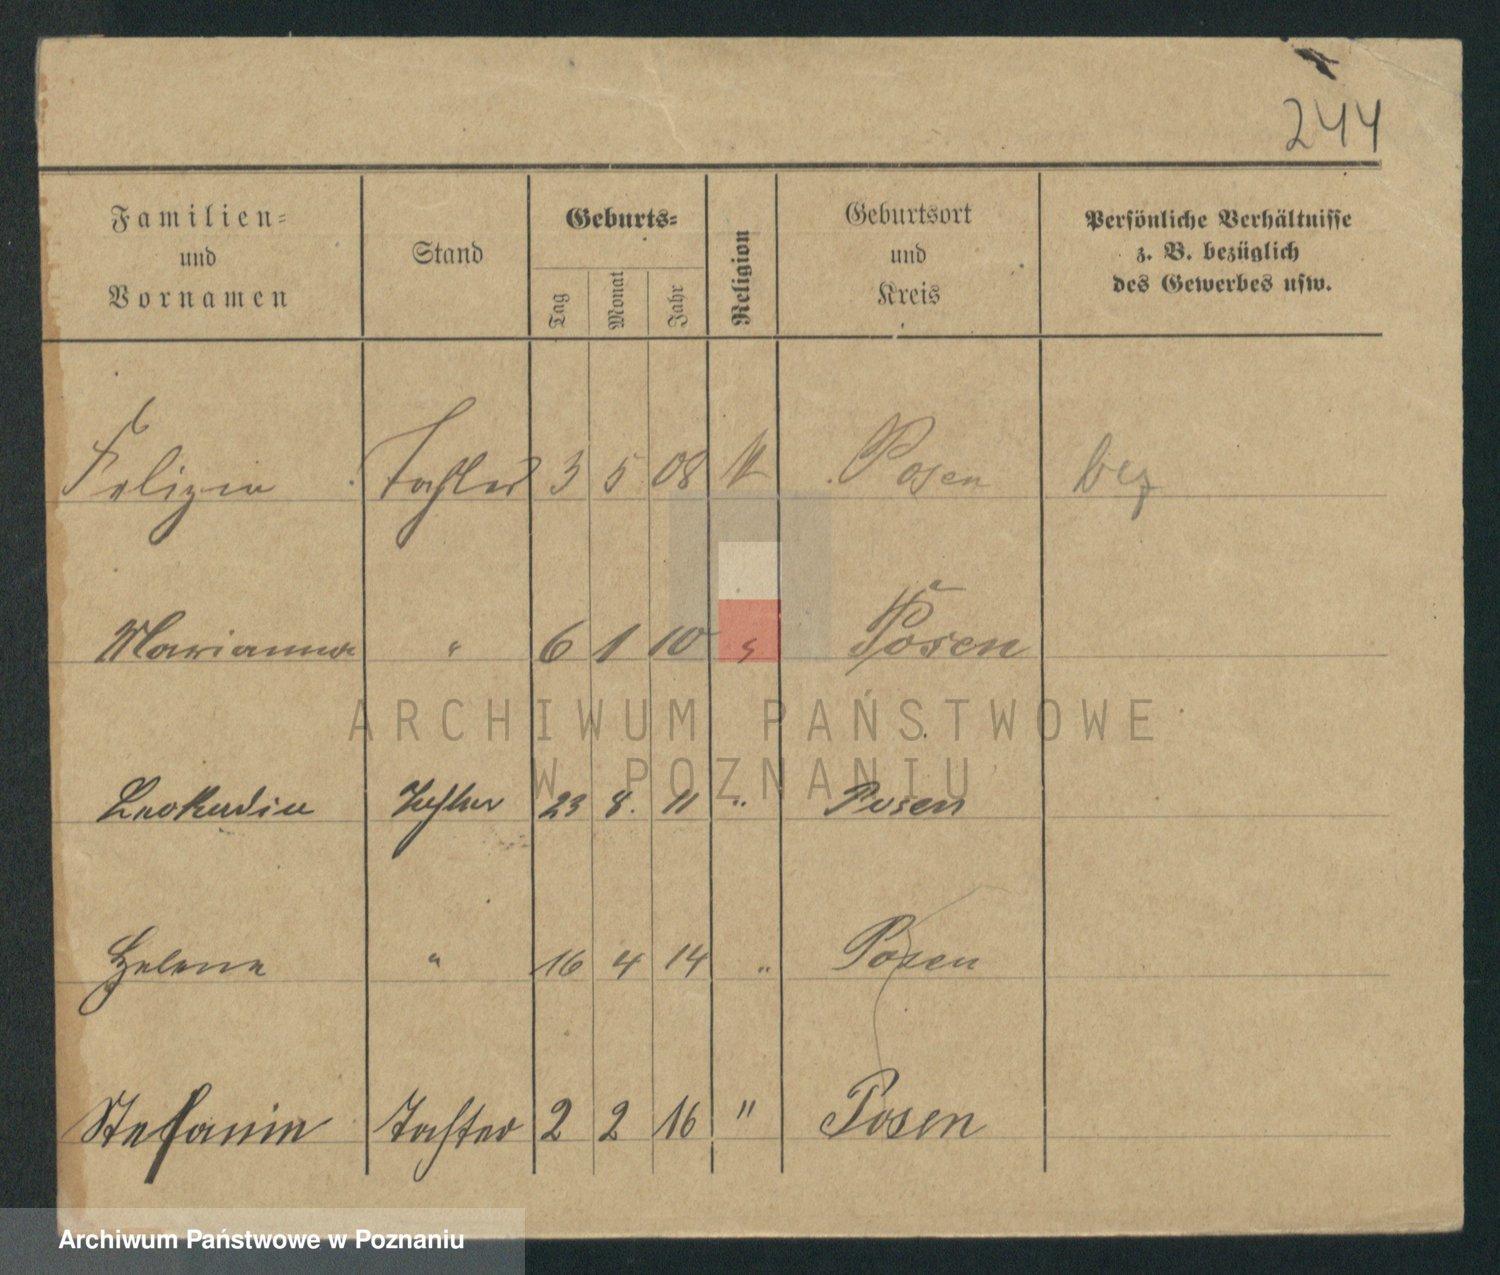 244
Familien-
und
Vornamen
Stand
Geburts-
Tag
Monat
Jahr
Religion
Geburtsort
und
Kreis
Persönliche Verhältnisse
z. B. bezüglich
des Gewerbes usw.
Felizia Tochter 3 5 08 Posen bez
Marianna " 6 1 10 " Posen
Leokadia Tochter 23 8. 11 " Posen
Helene " 16 4 14 " Posen
Stefanie Tochter 2 2 16 " Posen
ARCHIWUM PAŃSTWOWE
W POZNANIU
Archiwum Państwowe w Poznaniu